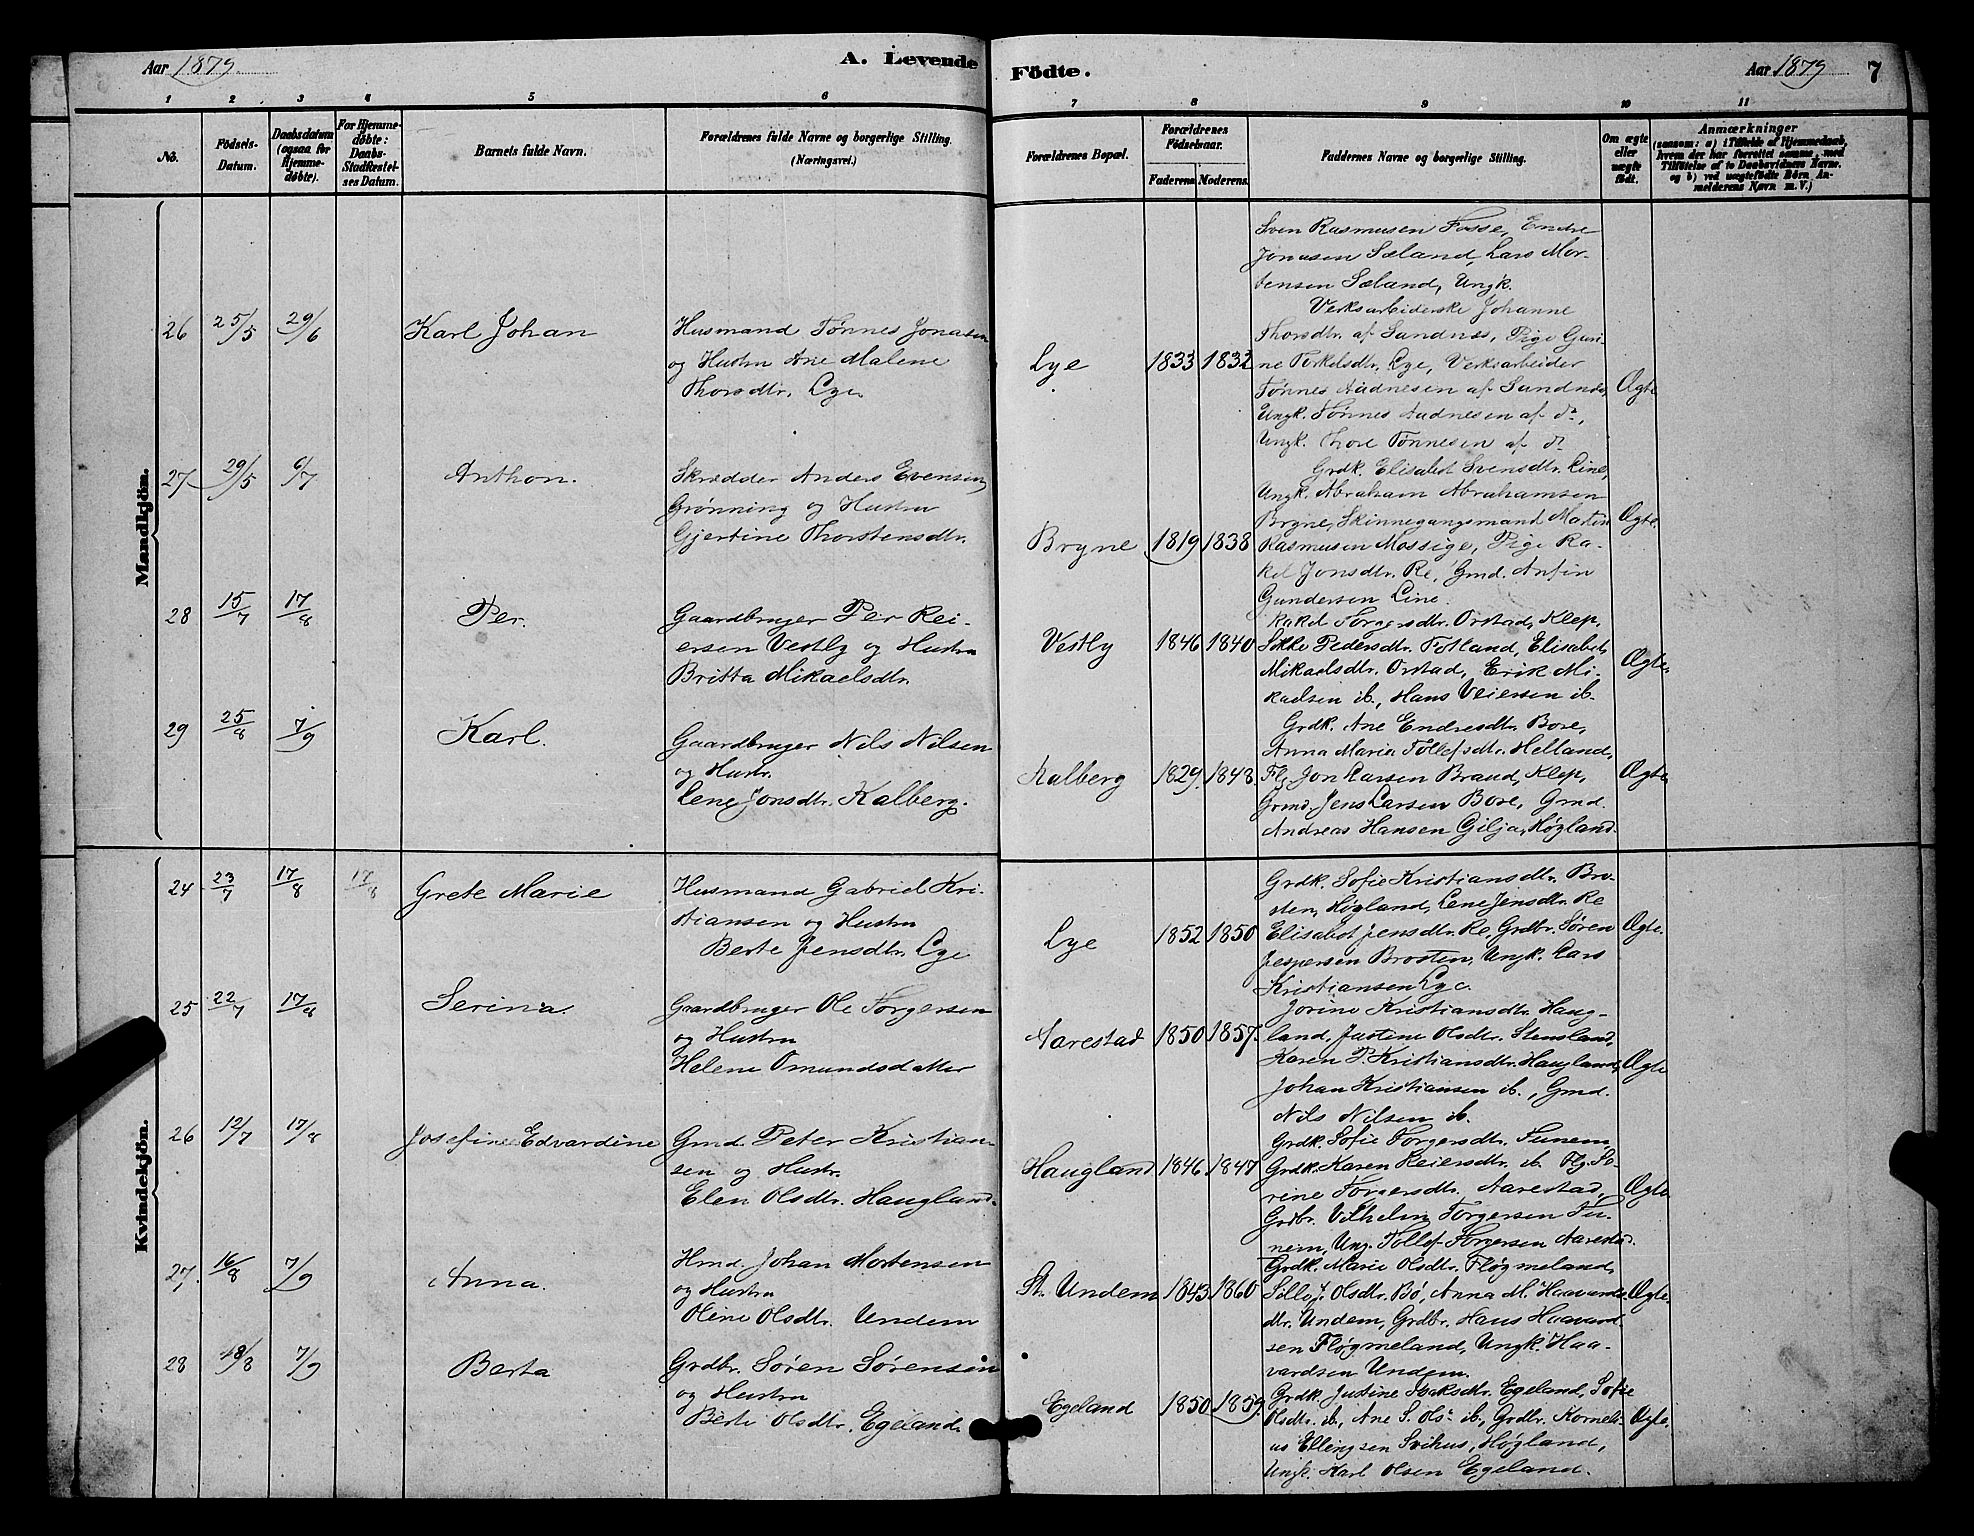 Aar 1879
A. Levende
Födte.
Aar 1879
7
1 2 3 4 5 6
7 8 9 10 11
No.
Födsels-
Datum.
Daabsdatum
(ogsaa for
Hjemme-
döbte).
For Hjemme-
döbte:
Daabs-
Stadfæstel-
ses Datum.
Barnets fulde Navn.
Forældrenes fulde Navne og borgerlige Stilling.
(Næringsvei.)
Forældrenes Bopæl.
Forældrenes
Födselsaar.
Faderens. Moderens.
Faddernes Navne og borgerlige Stilling.
Om ægte
eller
uægte
födt.
Anmærkninger
(saasom: a) i Tilfælde af Hjemmedaab,
hvem der har forrettet samme, med
Tilföielse af to Daabsvidners Navne.
og b) ved uægtefödte Börn An-
melderens Navn m. V.)
Mandkjön.
26 25/5 29/6 Karl Johan
Husmand Tønnes Jonasen
og Hustru Ane Malene
Thorsdtr. Lye
Lye 1833 1832
Sven Rasmusen Fosse, Endre
Jonasen Sæland, Lars Mor-
tensen Sæland, Ungk.
Verksarbeiderske Johanne
Thorsdtr. af Sandnes, Pige Guri-
ne Terkelsdtr. Lye, Verksarbeider
Tønnes Audnesen af Sandnes,
Ungk. Tønnes Audnesen af do,
Ungk. Thore Tønnesen af do
Ægte
27 29/5 6/7 Anthon.
Skrædder Anders Evensen
Grønning og Hustru
Gjertine Thorstensdtr.
Bryne 1819 1838
Grdk. Elisabet Svensdtr. Line,
Ungk. Abraham Abrahamsen
Bryne, Skinnegangsmand Martin
Rasmusen Mossige, Pige Ra-
kel Jonsdtr. Re, Gmd. Anfin
Gundersen Line.
Ægte.
28 15/7 17/8 Per.
Gaardbruger Per Rei-
ersen Vestly og Hustru
Britta Mikaelsdtr.
Vestly 1846 1840
Rakel Torgersdtr. Orstad, Klep,
Sikke Pedersdtr. Totland, Elisabet
Mikaelsdtr. Orstad, Erik Mi-
kaelsen ib., Hans Veiersen ib.
Ægte.
29 25/8 7/9 Karl.
Gaardbruger Nils Nilsen
og Hustr.
Lene Jonsdtr. Kalberg.
Kalberg 1829. 1848.
Grdk. Ane Endresdtr. Bore,
Anna Maria Tollefsdtr. Helland,
Flg. Jon Larsen Braud, Klep,
Grmd. Jens Larsen Bore, Gmd.
Andreas Hansen Gilja, Høgland.
Ægte
Kvindekjön.
24 23/7 17/8 17/8 Grete Marie
Husmand Gabriel Kri-
stiansen og Hustru
Berte Jensdtr. Lye
Lye 1852 1850
Grdk. Sofie Kristiansdtr. Bro-
sten, Høgland, Lene Jensdtr. Re
Elisabet Jensdtr. Re, Grdbr. Søren
Jespersen Brosten, Ungk. Lars
Kristiansen Lye.
Ægte.
25 22/7 17/8 Serina
Gaardbruger Ole Torgersen
og Hustru
Helene Omundsdatter
Aarestad 1850 1857.
Jorine Kristiansdtr. Haug-
land, Justine Olsdtr. Stensland,
Karen P. Kristiansdtr. Haugland,
Johan Kristiansen ib., Gmd.
Nils Nilsen ib.
Ægte
26 12/7 17/8 Josefine Edvardine
Gmd. Peter Kristian-
sen og Hustr.
Elen Olsdtr. Haugland.
Haugland 1846 1847
Grdk. Sofie Torgersdtr. Tunem,
Grdk. Karen Reiersdtr. ib. Flg. So-
rine Torgersdtr. Aarestad,
Grdbr. Vilhelm Torgersen Tu-
nem, Ung. Tollef Torgersen Aarestad.
Ægte
27. 16/8 7/9 Anna.
Hmd. Johan Mortensen
og Hustru
Oline Olsdtr. Undem
St. Undem 1843 1860
Grdk. Marie Olsdtr. Fløgmeland,
Sille J. Olsdtr. Bø, Anna M. Haavards-
dtr. Undem, Grdbr. Hans Haavard-
sen Fløgmeland, Ungk. Haa-
vardsen Undem.
Ægte.
28 18/8 7/9 Berta
Grdbr. Søren Sørensen
og Hustru
Berte Olsdtr. Egeland.
Egeland 1850 1859.
Grdk. Justine Isaksdtr. Egeland, Sofie
Olsdtr. ib., Ane S. Ols. ib., Grdbr. Korneli-
us Ellingsen Svihus, Høgland,
Ungk. Karl Olsen Egeland.
Ægte.